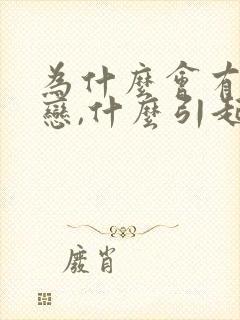 為什麼會有
戀,什麼引起
廢肖